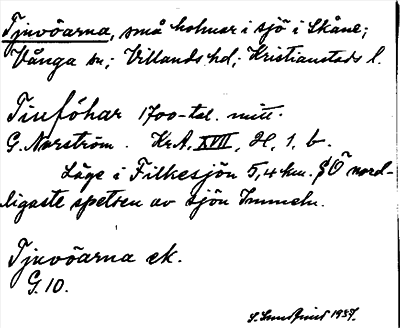 Tjuvöarna, små holmar i sjö i Skåne;
Vånga sn; Villands hd; Kristianstads l.
Tiuföhar 1700-tal. mitt.
G. Norström. KrA, XVII, H, 1, b.
Läge i Filkesjön 5,4 km. SÖ nord-
ligaste spetsen av sjön Immeln.
Tjuvöarna ek.
G. 10.
S. Sundquist 1937.